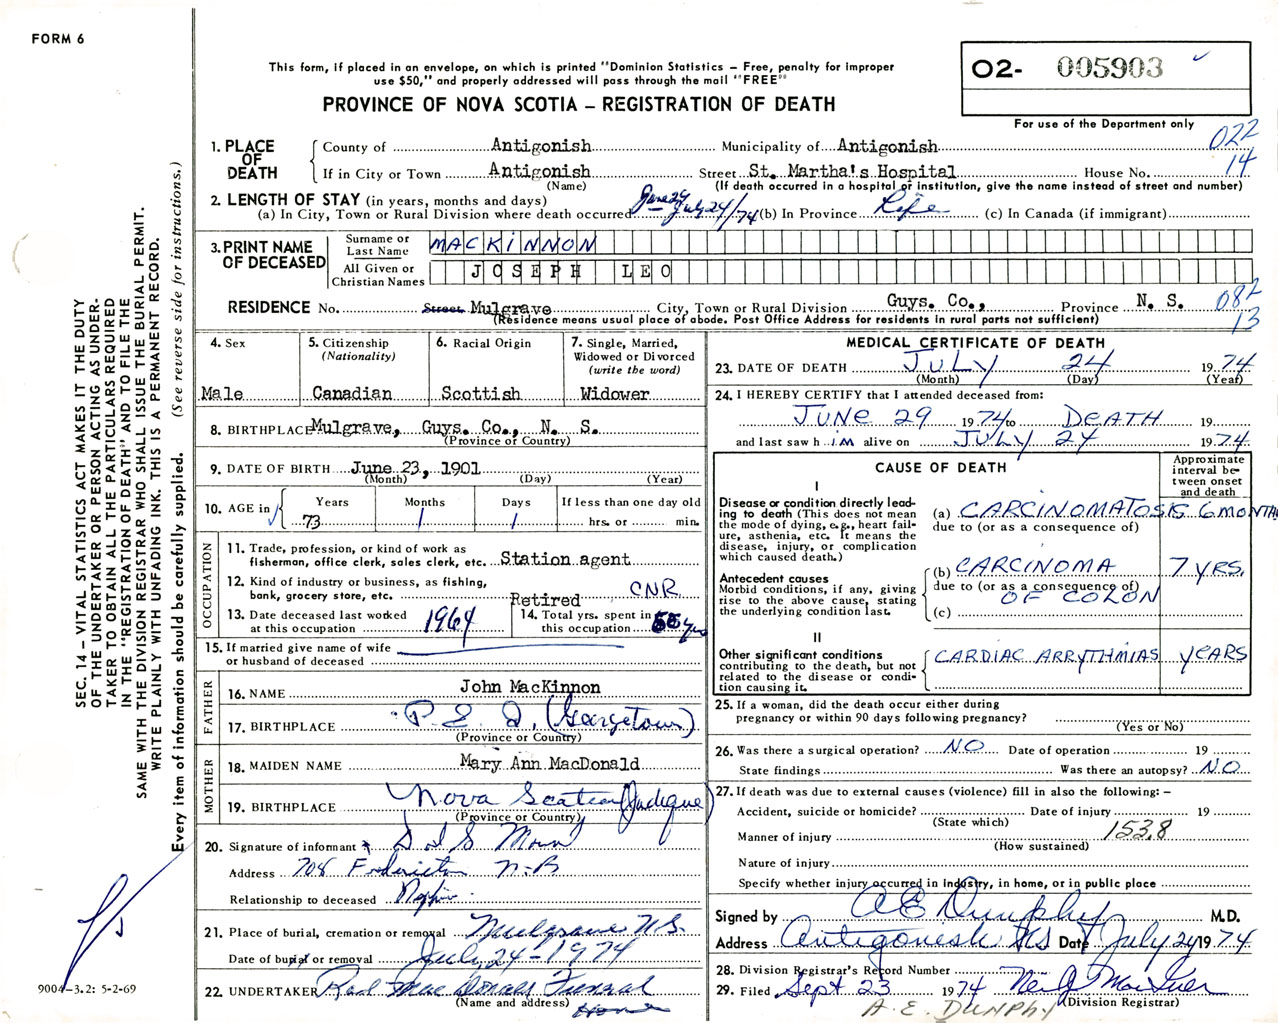 FORM 6
This form, if placed in an envelope, on which is printed "Dominion Statistics – Free, penalty for improper
use $50," and properly addressed will pass through the mail "FREE"
PROVINCE OF NOVA SCOTIA – REGISTRATION OF DEATH
02- 005903
For use of the Department only
022
14
1. PLACE OF DEATH
County of Antigonish Municipality of Antigonish
If in City or Town Antigonish Street St. Martha's Hospital House No.
(Name) (If death occurred in a hospital or institution, give the name instead of street and number)
2. LENGTH OF STAY (in years, months and days)
(a) In City, Town or Rural Division where death occurred June 29 – July 24/74 (b) In Province Life (c) In Canada (if immigrant)
3. PRINT NAME OF DECEASED
Surname or Last Name MACKINNON
All Given or Christian Names JOSEPH LEO
RESIDENCE No. Street Mulgrave City, Town or Rural Division Guys. Co., Province N. S.
(Residence means usual place of abode. Post Office Address for residents in rural parts not sufficient)
082
13
4. Sex
Male
5. Citizenship
(Nationality)
Canadian
6. Racial Origin
Scottish
7. Single, Married,
Widowed or Divorced
(write the word)
Widower
8. BIRTHPLACE Mulgrave, Guys. Co., N. S.
(Province or Country)
9. DATE OF BIRTH June 23, 1901
(Month) (Day) (Year)
10. AGE in
Years Months Days If less than one day old
73 1 1 hrs. or min.
OCCUPATION
11. Trade, profession, or kind of work as
fisherman, office clerk, sales clerk, etc. Station agent
12. Kind of industry or business, as fishing,
bank, grocery store, etc. Retired CNR
13. Date deceased last worked
at this occupation 1964
14. Total yrs. spent in
this occupation yrs
15. If married give name of wife
or husband of deceased
FATHER
16. NAME John MacKinnon
17. BIRTHPLACE P.E.I. (Georgetown)
(Province or Country)
MOTHER
18. MAIDEN NAME Mary Ann MacDonald
19. BIRTHPLACE Nova Scotia (Judique)
(Province or Country)
20. Signature of informant
Address 708 Fredericton N-B
Relationship to deceased
21. Place of burial, cremation or removal Mulgrave N.S.
Date of burial or removal July 24-1974
22. UNDERTAKER MacDonald Funeral
Home
(Name and address)
MEDICAL CERTIFICATE OF DEATH
23. DATE OF DEATH JULY 24 1974
(Month) (Day) (Year)
24. I HEREBY CERTIFY that I attended deceased from:
JUNE 29 1974 to DEATH 19
and last saw him alive on JULY 24 1974
CAUSE OF DEATH
Approximate
interval be-
tween onset
and death
I
Disease or condition directly lead-
ing to death (This does not mean
the mode of dying, e.g., heart fail-
ure, asthenia, etc. It means the
disease, injury, or complication
which caused death.)
(a) CARCINOMATOSIS 6 MONTHS
due to (or as a consequence of)
Antecedent causes
Morbid conditions, if any, giving
rise to the above cause, stating
the underlying condition last.
(b) CARCINOMA 7 YRS.
due to (or as a consequence of)
OF COLON
(c)
II
Other significant conditions
contributing to the death, but not
related to the disease or condi-
tion causing it.
CARDIAC ARRYTHMIAS YEARS
25. If a woman, did the death occur either during
pregnancy or within 90 days following pregnancy?
(Yes or No)
26. Was there a surgical operation? NO Date of operation 19
State findings Was there an autopsy? NO
27. If death was due to external causes (violence) fill in also the following: –
Accident, suicide or homicide? Date of injury 19
(State which)
Manner of injury 153.8
(How sustained)
Nature of injury
Specify whether injury occurred in Industry, in home, or in public place
Signed by A E Dunphy M.D.
Address Antigonish NS Date July 24 1974
28. Division Registrar's Record Number
29. Filed Sept 23 1974
(Division Registrar)
A. E. DUNPHY
SEC. 14 – VITAL STATISTICS ACT MAKES IT THE DUTY
OF THE UNDERTAKER OR PERSON ACTING AS UNDER-
TAKER TO OBTAIN ALL THE PARTICULARS REQUIRED
IN THE "REGISTRATION OF DEATH" AND TO FILE THE
SAME WITH THE DIVISION REGISTRAR WHO SHALL ISSUE THE BURIAL PERMIT.
WRITE PLAINLY WITH UNFADING INK. THIS IS A PERMANENT RECORD.
Every item of information should be carefully supplied. (See reverse side for instructions.)
9004-3.2: 5-2-69